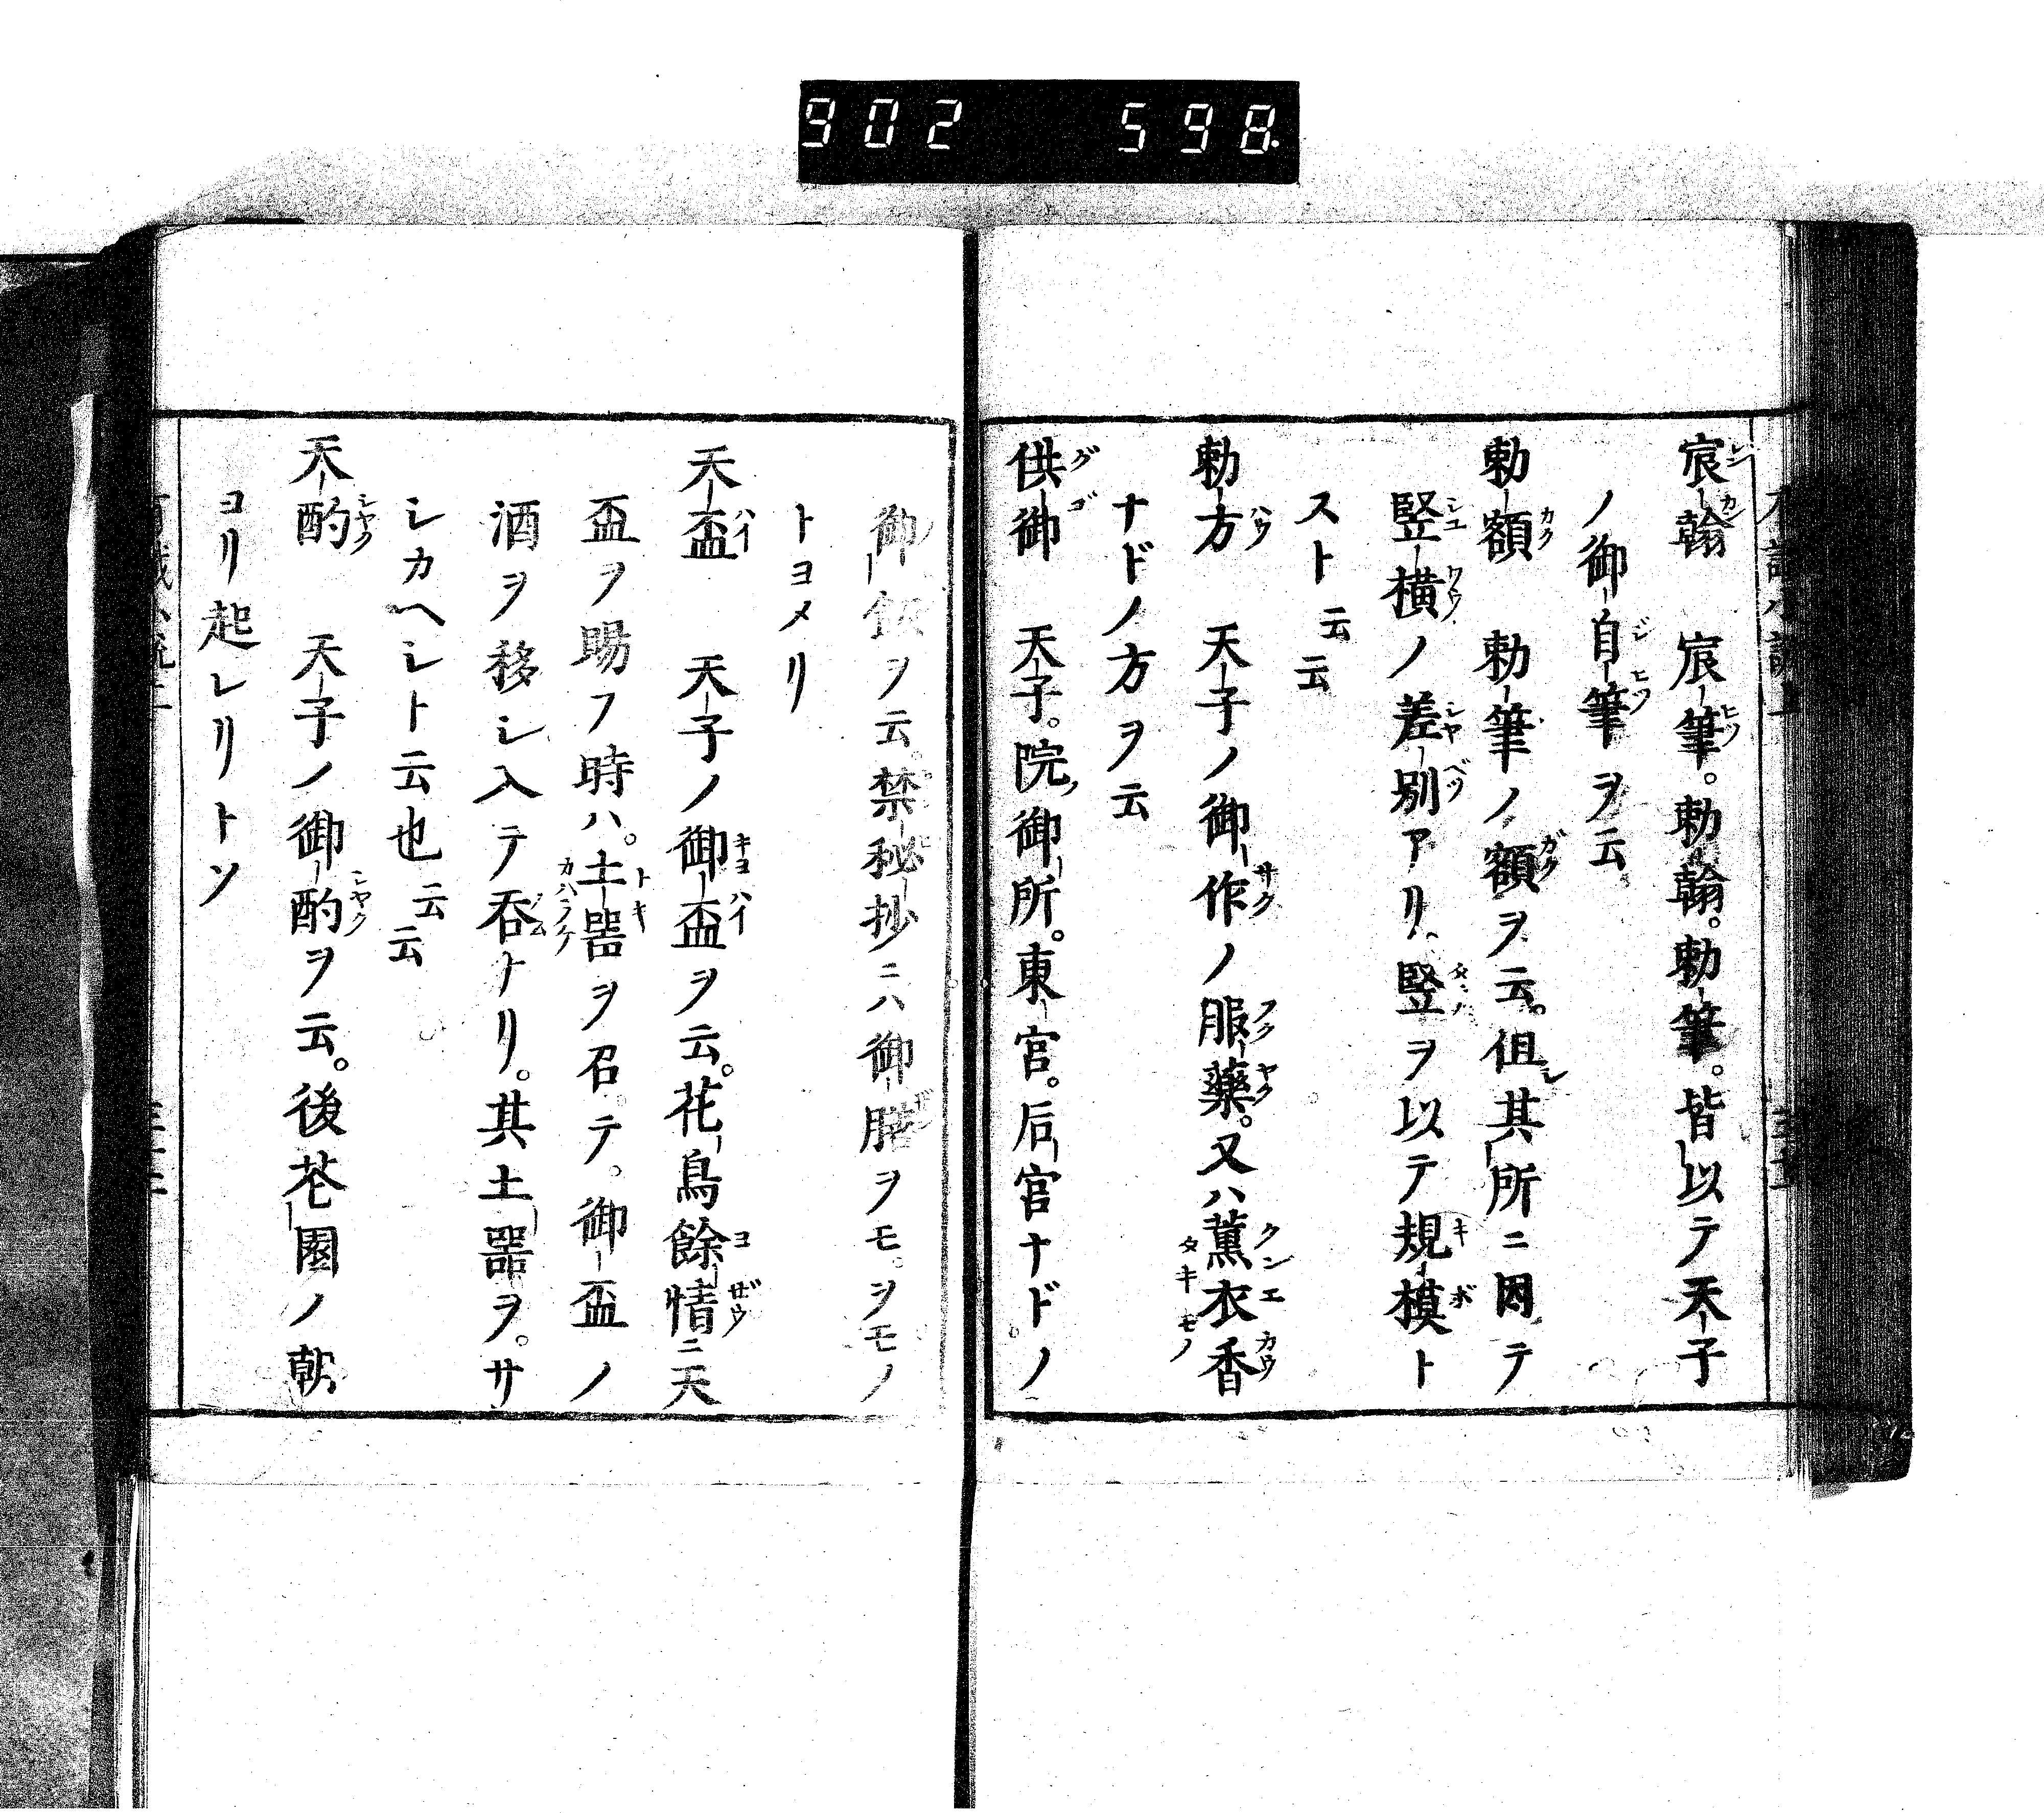 902 598
宸翰 宸筆。勅翰。勅筆。皆以テ天子
ノ御自筆ヲ云
勅額 勅筆ノ額ヲ云。但其所ニ因テ
竪横ノ差別アリ竪ヲ以テ規模ト
スト云云
勅方 天子ノ御作ノ服藥。又ハ薫衣香
ナドノ方ヲ云
供御 天子。院御所。東宮。后宮ナドノ
御飯ヲ云。禁秘抄ニハ御膳ヲモ。ヲモノ
トヨメリ
天盃 天子ノ御盃ヲ云。花鳥餘情ニ天
盃ヲ賜フ時ハ。土噐ヲ召テ。御盃ノ
酒ヲ移シ入テ呑ナリ。其土噐ヲ。サ
シカヘシト云也云云
天酌 天子ノ御酌ヲ云。後花園ノ朝
ヨリ起レリトソ